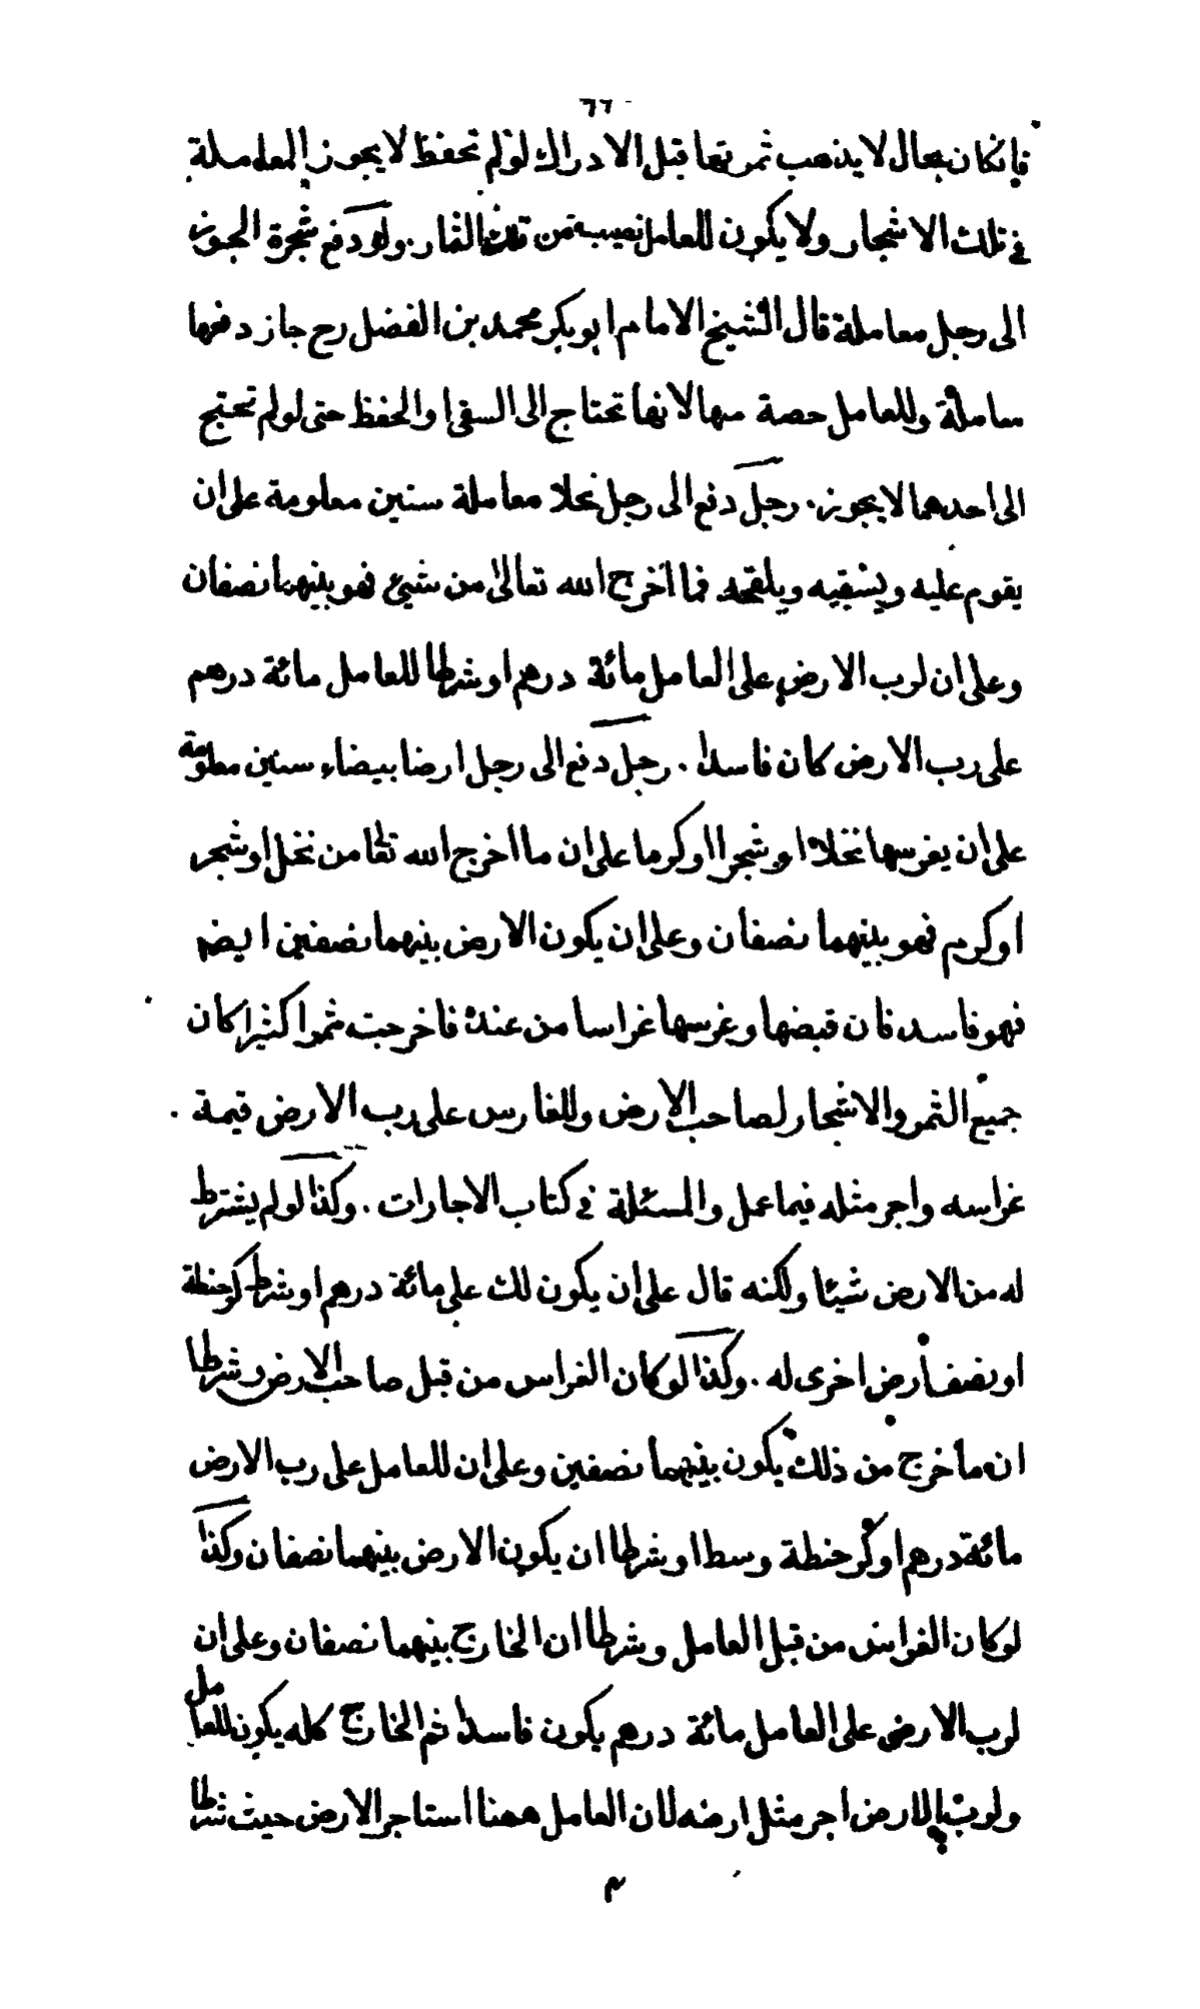 ٦٦
فان كان بحال لا يذهب ثمرتها قبل الادراك لو لم تحفظ لا يجوز المعاملة
في تلك الاشجار ولا يكون للعامل نصيب من تلك الثمار. ولو دفع شجرة الجوز
الى رجل معاملة قال الشيخ الامام ابو بكر محمد بن الفضل رح جاز دفعها
معاملة وللعامل حصة منها لانها تحتاج الى السقى او الحفظ حتى لو لم تحتج
الى احدهما لا يجوز. رجل دفع الى رجل نخلا معاملة سنين معلومة على ان
يقوم عليه ويسقيه ويلقحه فما اخرج الله تعالى من شيئ فهو بينهما نصفان
وعلى ان لرب الارض على العامل مائة درهم او شرطا للعامل مائة درهم
على رب الارض كان فاسدا. رجل دفع الى رجل ارضا بيضاء سنين معلومة
على ان يغرسها نخلا او شجرا او كرما على ان ما اخرج الله تعا من نخل او شجر
او كرم فهو بينهما نصفان وعلى ان يكون الارض بينهما نصفين ايضم
فهو فاسد فان قبضها وغرسها غراسا من عنده فاخرجت ثمرا كثيرا كان
جميع الثمر والاشجار لصاحب الارض وللغارس على رب الارض قيمة
غراسه واجر مثله فيما عمل والمسئلة في كتاب الاجارات. وكذا لو لم يشترط
له من الارض شيئا ولكنه قال على ان يكون لك علي مائة درهم او شرط كر حنطة
او نصف ارض اخرى له. وكذا لو كان الغراس من قبل صاحب الارض وشرطا
ان ما خرج من ذلك يكون بينهما نصفين وعلى ان للعامل على رب الارض
مائة درهم او كر حنطة وسط او شرطا ان يكون الارض بينهما نصفان وكذا
لو كان الغراس من قبل العامل وشرطا ان الخارج بينهما نصفان وعلى ان
لرب الارض على العامل مائة درهم يكون فاسدا ثم الخارج كله يكون للعامل
ولرب الارض اجر مثل ارضه لان العامل ههنا استاجر الارض حيث شرطا
م